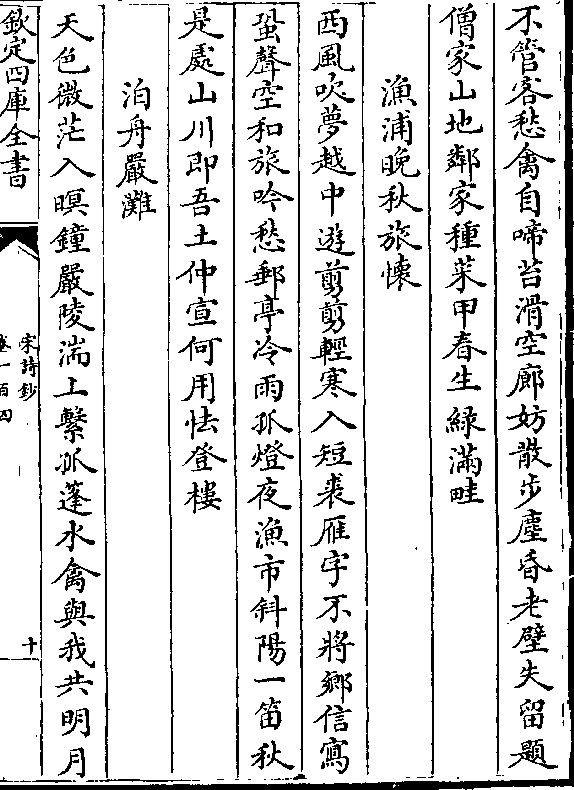 不管客愁禽自啼苔滑空廊妨散步塵昏老壁失留題
僧家山地鄰家種菜甲春生綠滿畦
漁浦晚秋旅懐
西風吹夢越中遊翦翦輕寒入短裘雁字不將鄉信寫
蛩聲空和旅吟愁郵亭冷雨孤燈夜漁市斜陽一笛秋
是處山川即吾土仲宣何用怯登樓
泊舟嚴灘
天色微茫入暝鐘嚴陵湍上繫孤蓬水禽與我共明月
欽定四庫全書
宋詩鈔
卷一百四
十